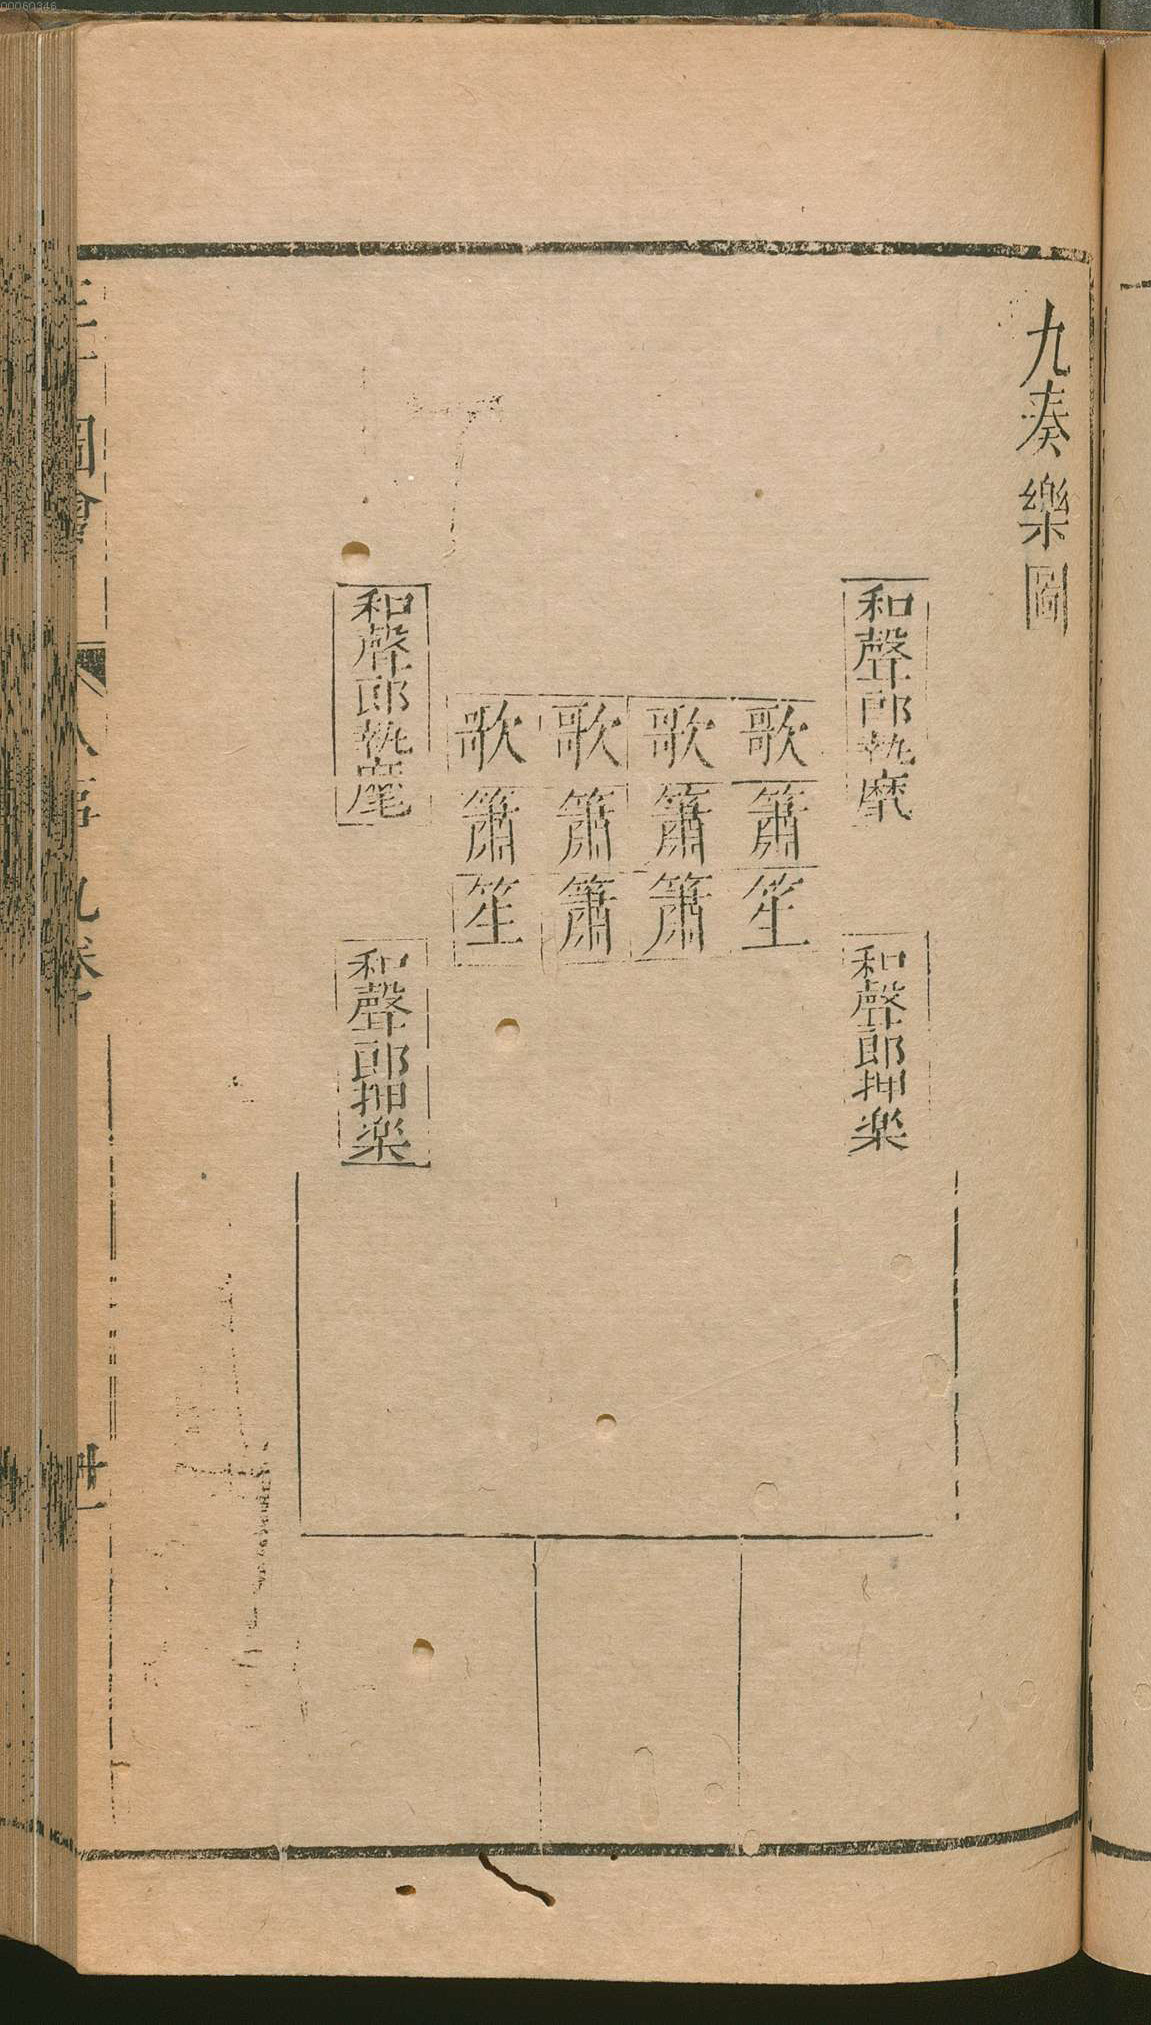 九奏樂圖
和聲郎執麾
和聲郎押楽
歌簫笙
歌簫簫
歌簫簫
歌簫笙
和聲郎執麾
和聲郎押楽
圖會
九卷
00060346